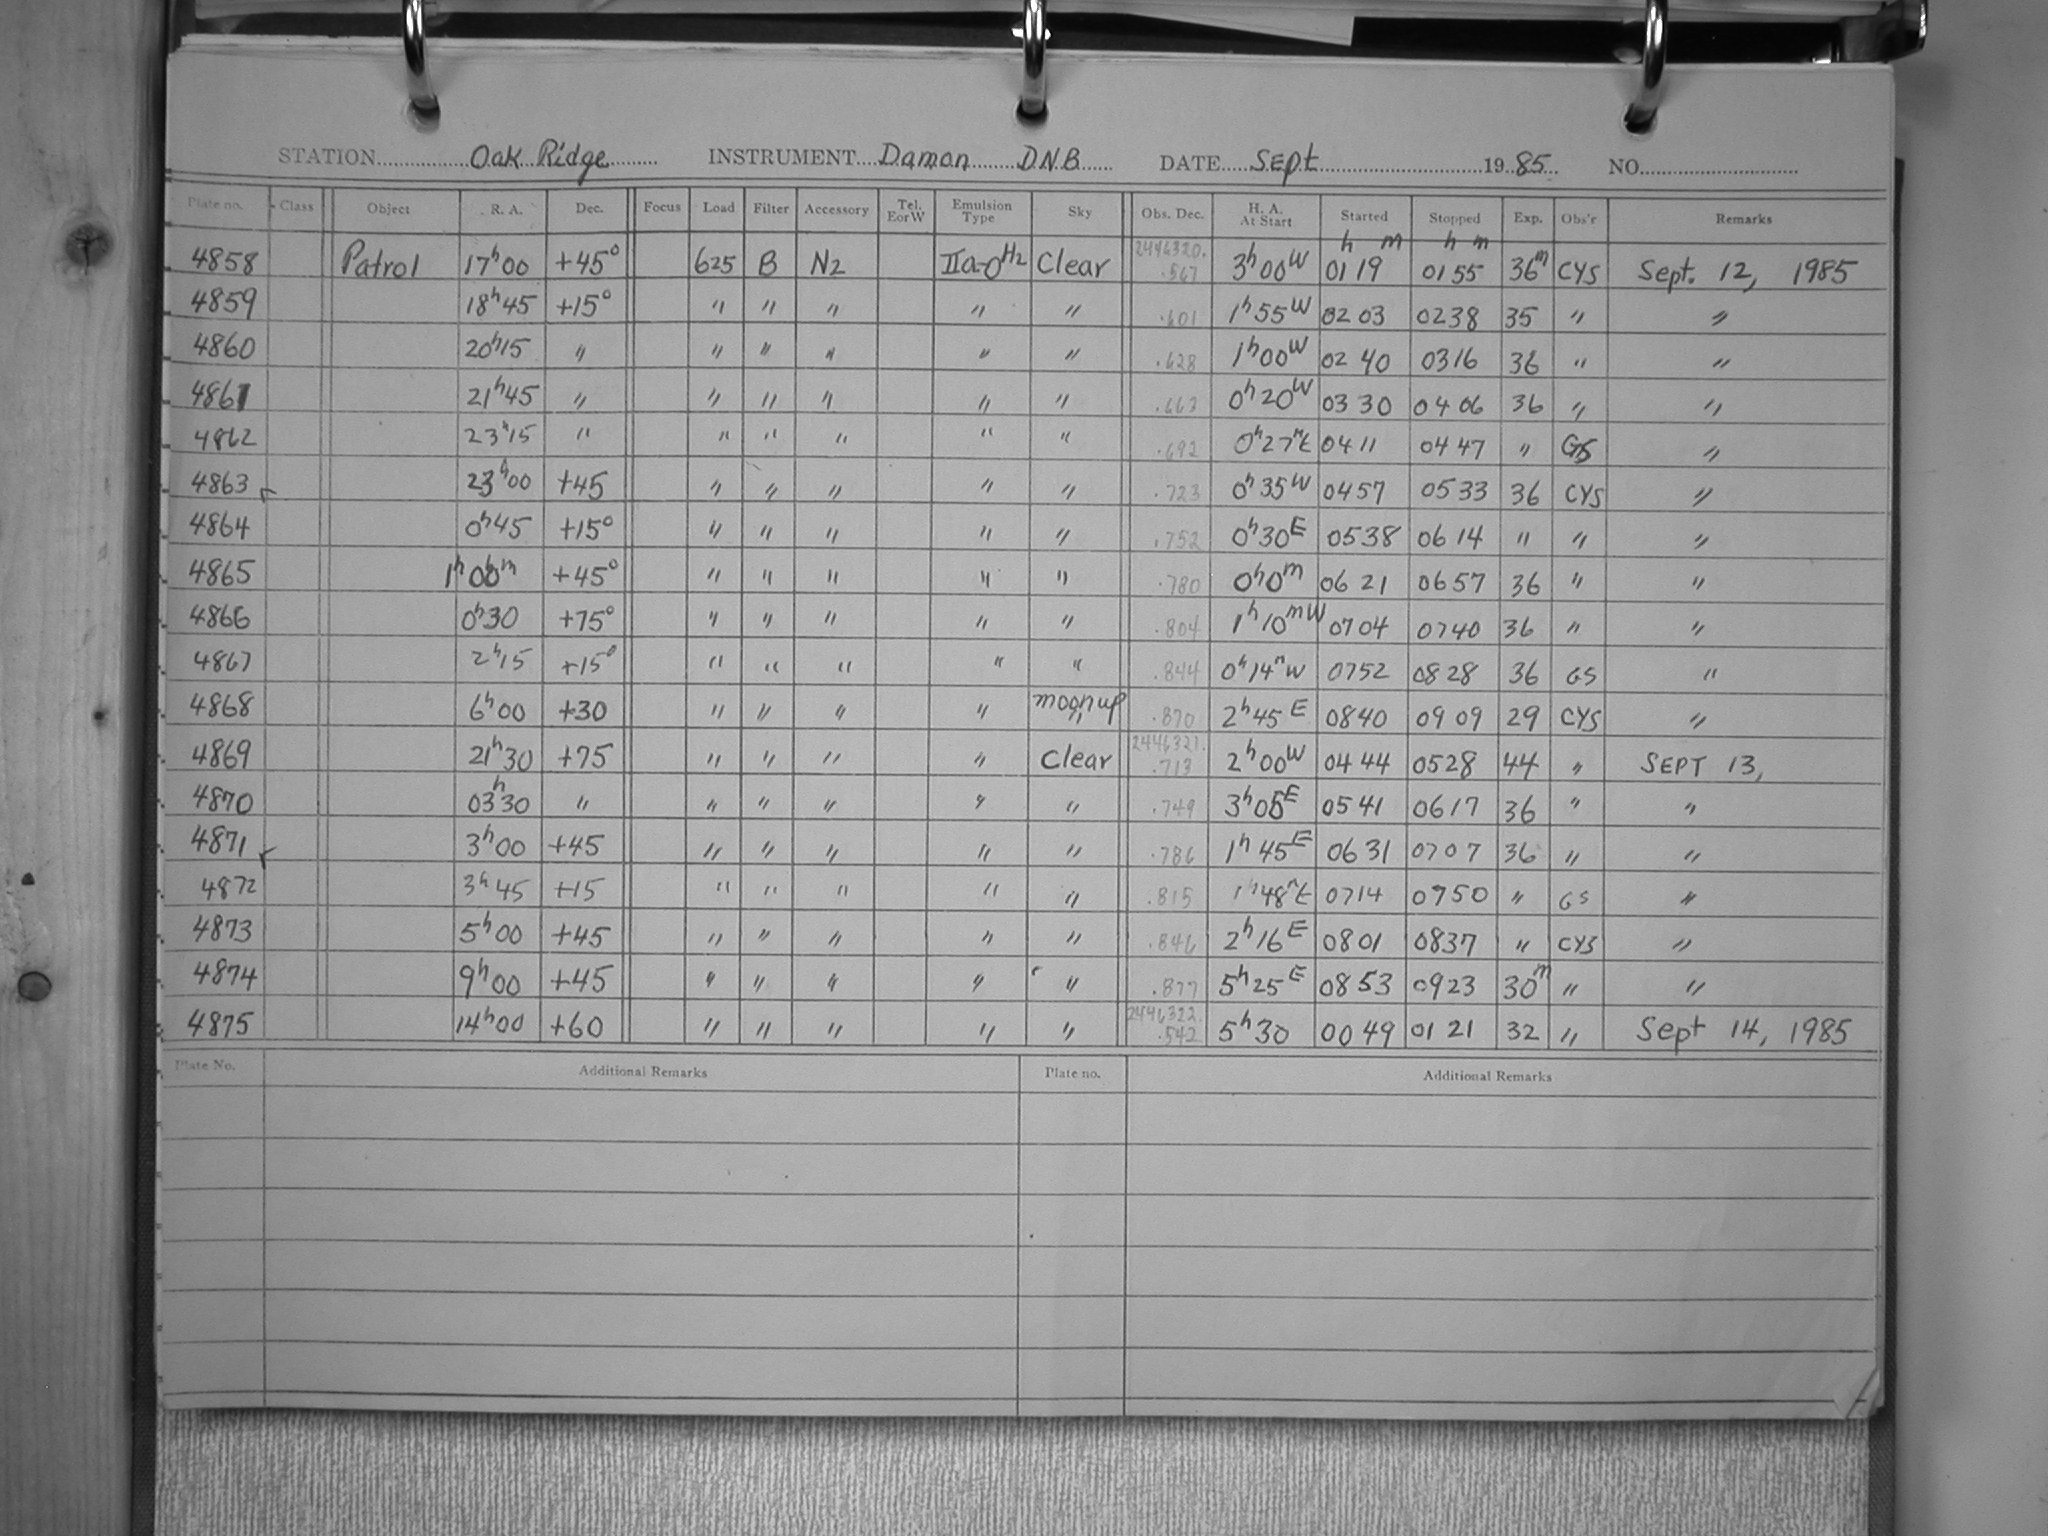 STATION Oak Ridge INSTRUMENT Damon DNB DATE Sept 19 85 NO.
Plate no. Class Object R. A. Dec. Focus Load Filter Accessory Tel. E or W Emulsion Type Sky Obs. Dec. H. A. At Start Started Stopped Exp. Obs'r Remarks
h m h m
4858 Patrol 17h00 +45° 625 B N2 IIa-O H2 Clear 2446320. .567 3h00W 0119 0155 36m CYS Sept. 12, 1985
4859 18h45 +15° " " " " " .601 1h55W 0203 0238 35 " "
4860 20h15 " " " " " " .628 1h00W 0240 0316 36 " "
4861 21h45 " " " " " " .663 0h20W 0330 0406 36 " "
4862 23h15 " " " " " " .692 0h27mE 0411 0447 " GS "
4863 23h00 +45 " " " " " .723 0h35W 0457 0533 36 CYS "
4864 0h45 +15° " " " " " .752 0h30E 0538 0614 " " "
4865 1h00m +45° " " " " " .780 0h0m 0621 0657 36 " "
4866 0h30 +75° " " " " " .804 1h10mW 0704 0740 36 " "
4867 2h15 +15° " " " " " .844 0h14mW 0752 0828 36 GS "
4868 6h00 +30 " " " " moon up " .870 2h45E 0840 0909 29 CYS "
4869 21h30 +75 " " " " Clear 2446321. .713 2h00W 0444 0528 44 " SEPT 13,
4870 03h30 " " " " " " .749 3h05E 0541 0617 36 " "
4871 3h00 +45 " " " " " .786 1h45E 0631 0707 36 " "
4872 3h45 +15 " " " " " .815 1h48mE 0714 0750 " GS "
4873 5h00 +45 " " " " " .846 2h16E 0801 0837 " CYS "
4874 9h00 +45 " " " " " .877 5h25E 0853 0923 30m " "
4875 14h00 +60 " " " " " 2446322. .542 5h30 0049 0121 32 " Sept 14, 1985
Plate No. Additional Remarks Plate no. Additional Remarks